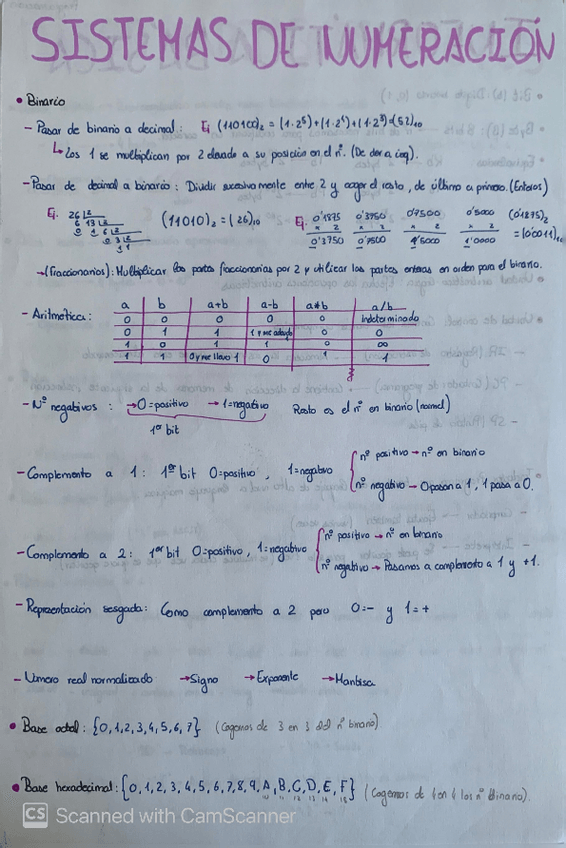 SISTEMAS DE NUMERACIÓN
• Binario
- Pasar de binario a decimal: Ej (110100)₂ = (1·2⁵)+(1·2⁴)+(1·2²)=(52)₁₀
↳ Los 1 se multiplican por 2 elevado a su posición en el nº. (De der a izq).
- Pasar de decimal a binario: Dividir sucesivamente entre 2 y coger el resto, de último a primero. (Enteros)
Ej. 26 |2 (11010)₂ = (26)₁₀ Ej. 0'1875 0'3750 0'7500 0'5000 (0'1875)₁₀
6 13 |2 x 2 x 2 x 2 x 2 = (0'0011)₂
0 1 6 |2 0'3750 0'7500 1'5000 1'0000
0 3 |2
1 1
→ (Fraccionarios): Multiplicar las partes fraccionarias por 2 y utilizar las partes enteras en orden para el binario.
- Aritmética: a b a+b a-b a*b a/b
0 0 0 0 0 Indeterminado
0 1 1 1 y me adeudo 0 0
1 0 1 1 0 ∞
1 1 0 y me llevo 1 0 1 1
- Nº negativos: → 0=positivo → 1=negativo Resto es el nº en binario (normal)
1er bit
- Complemento a 1: 1er bit 0=positivo, 1=negativo
nº positivo → nº en binario
nº negativo → 0 pasan a 1, 1 pasa a 0.
- Complemento a 2: 1er bit 0=positivo, 1=negativo
nº positivo → nº en binario
nº negativo → Pasamos a complemento a 1 y +1.
- Representación sesgada: Como complemento a 2 pero 0=- y 1=+
- Número real normalizado → Signo → Exponente → Mantisa
• Base octal: {0,1,2,3,4,5,6,7} (Cogemos de 3 en 3 del nº binario)
• Base hexadecimal: {0,1,2,3,4,5,6,7,8,9,A,B,C,D,E,F} (Cogemos de 4 en 4 los nº Binario).
10 11 12 13 14 15
CS Scanned with CamScanner